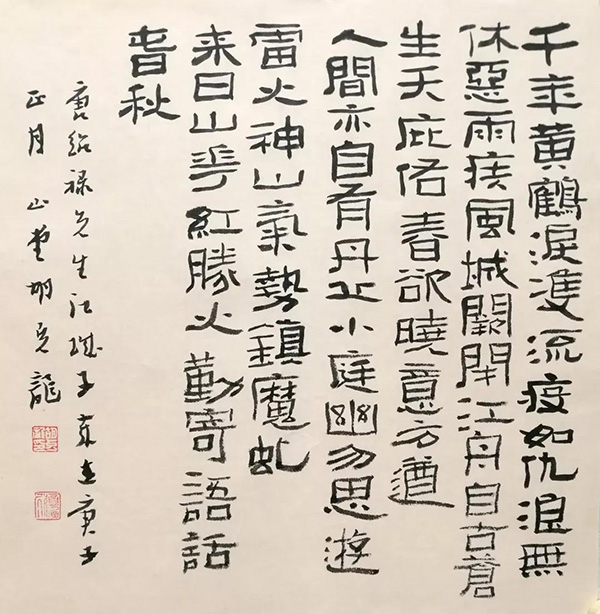 千年黃鶴淚雙流疫如仇浪無
休惡雨疾風城闕閉江舟自古蒼
生天庇佑春欲曉意方遒
人間亦自有丹丘小庭幽勿思遊
雷火神山氣勢鎮魔虬
来日山花紅勝火勤寄語話
春秋
唐紹祿先生江城子庚子
正月山堂胡龍